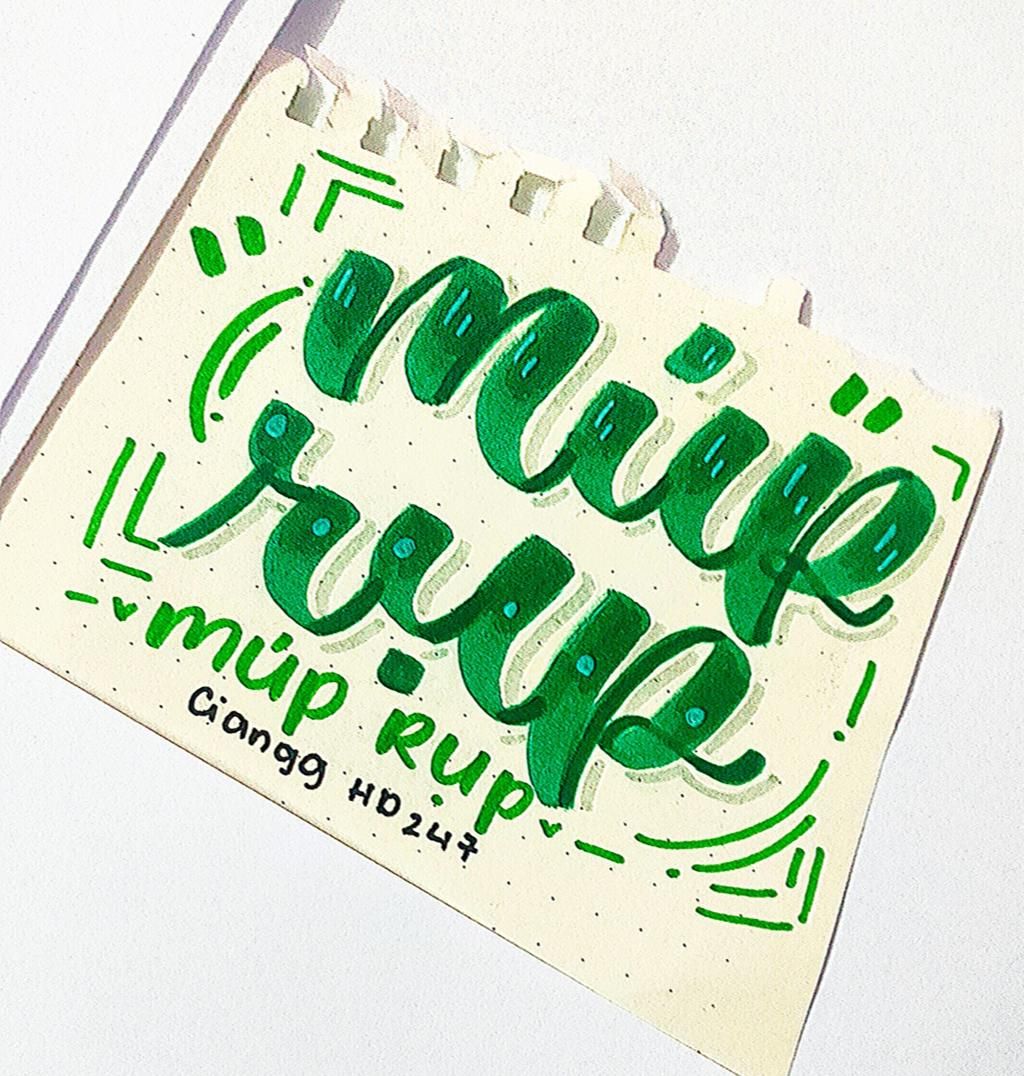 múp
rụp
múp Rụp
Ciangg HD247